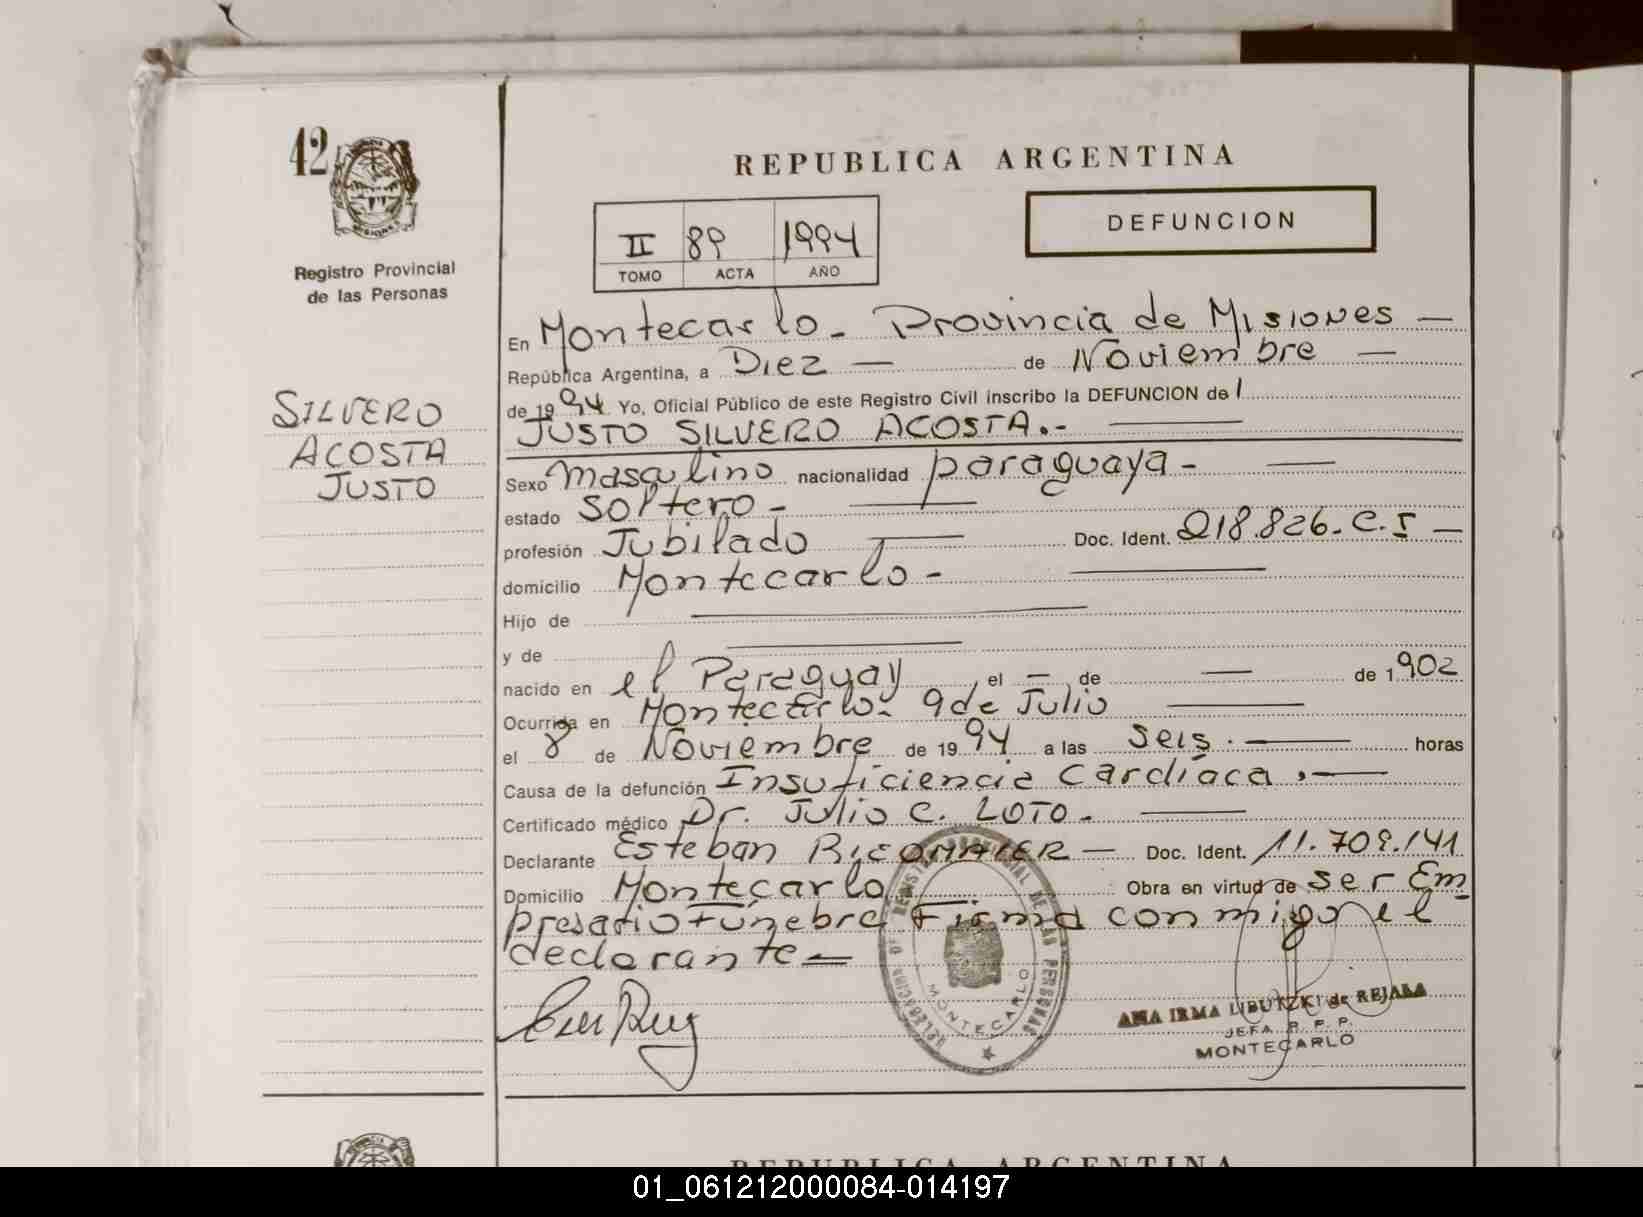 42
Registro Provincial
de las Personas
SILVERO
ACOSTA
JUSTO
REPUBLICA ARGENTINA
II 89 1994
TOMO ACTA AÑO
DEFUNCION
En Montecarlo - Provincia de Misiones —
República Argentina, a Diez — de Noviembre —
de 1994 Yo, Oficial Público de este Registro Civil inscribo la DEFUNCION de l
JUSTO SILVERO ACOSTA.- —
Sexo masculino nacionalidad paraguaya - —
estado soltero - —
profesión Jubilado — Doc. Ident. 218.826. C.I —
domicilio Montecarlo - —
Hijo de —
y de —
nacido en el Paraguay, el — de — de 1902
Ocurrida en Montecarlo - 9 de Julio —
el 8 de Noviembre de 1994 a las seis. — horas
Causa de la defunción Insuficiencia Cardíaca. —
Certificado médico Dr. Julio C. LOTO. —
Declarante Esteban — Doc. Ident. 11.709.141
Domicilio Montecarlo Obra en virtud de ser Em
presario fúnebre Firma conmigo el
declarante —
DELEGACION DE REGISTRO PROVINCIAL DE LAS PERSONAS
MONTECARLO
ANA IRMA LIBUTZKI de REJALA
JEFA R. P. P.
MONTECARLO
REPUBLICA ARGENTINA
01_061212000084-014197